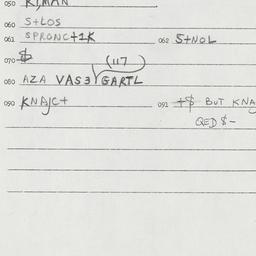 050 KI,MAN
060 S+LOS
061 SPRONC+1K 062 S+NOL
070 $
(117
080 AZA VAS3 GARTL
090 KNAJC+ 091 +$ BUT KNA
QED $-